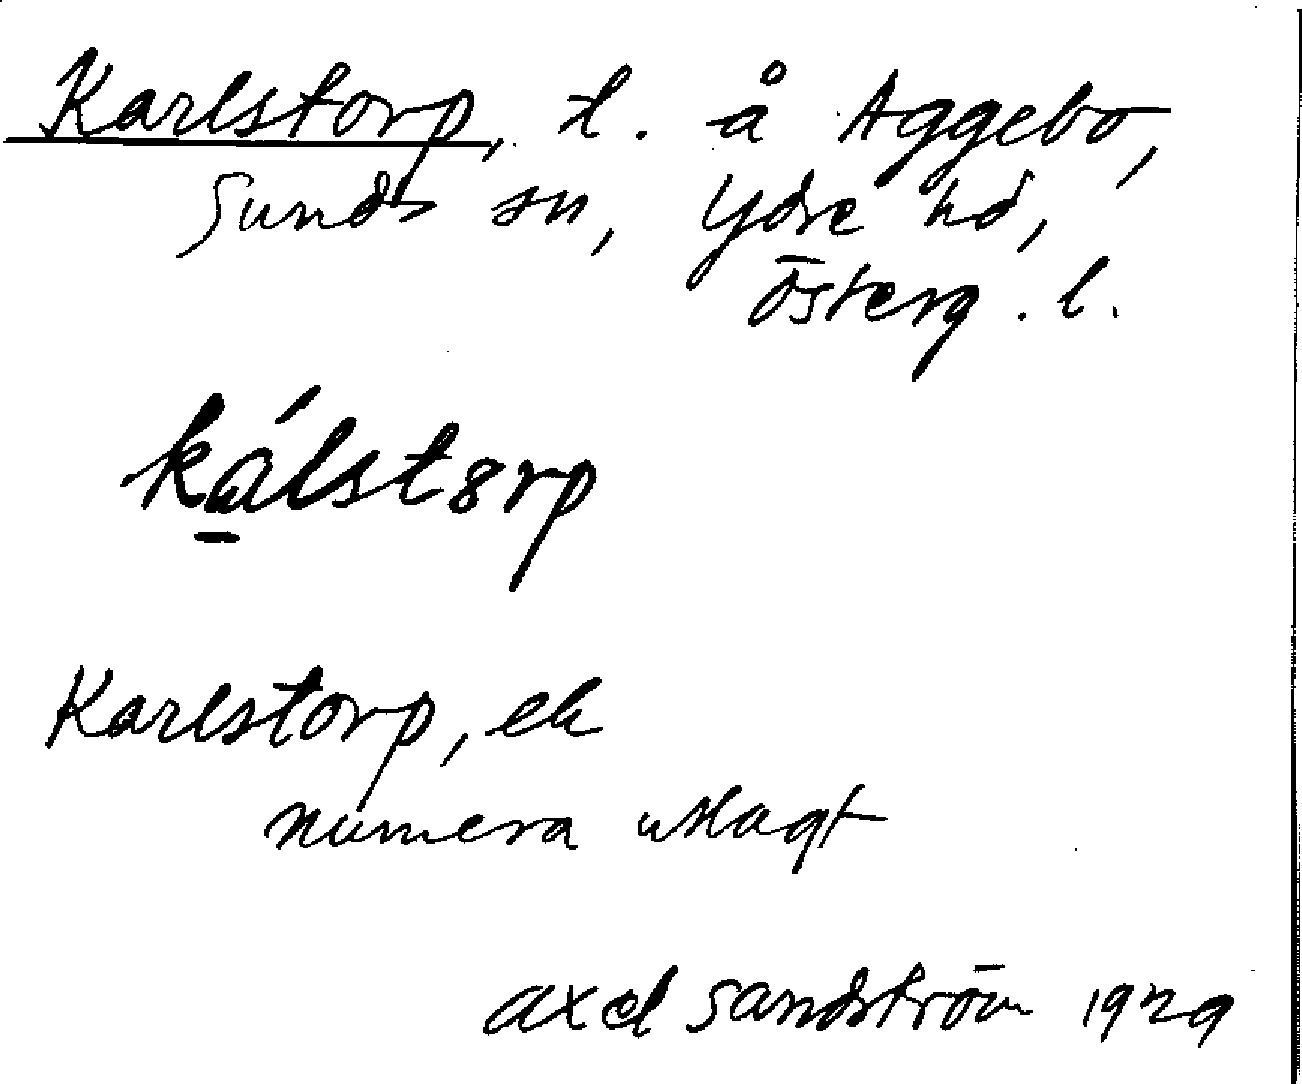 Karlstorp, t. å Aggebo,
Sunds sn, Ydre hd,
Österg. l.
kálstȣrp
Karlstorp, ek
numera utlagt
Axel Sandström 1929